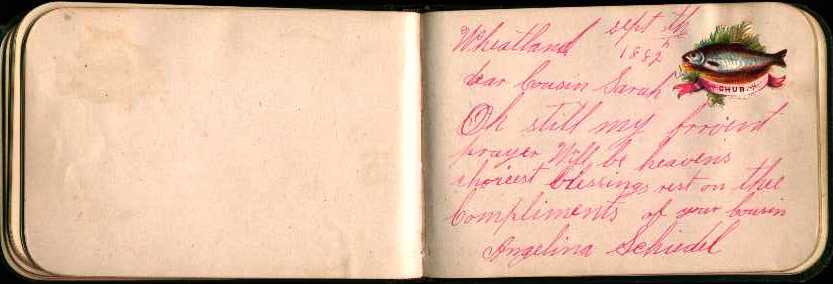 Wheatland sept th
1882
CHUB
dear Cousin Sarah
Oh still my frvient
prayer Will be heavens
choicest blessings rest on thee
Compliments of your Cousin
Angelina Schiedel